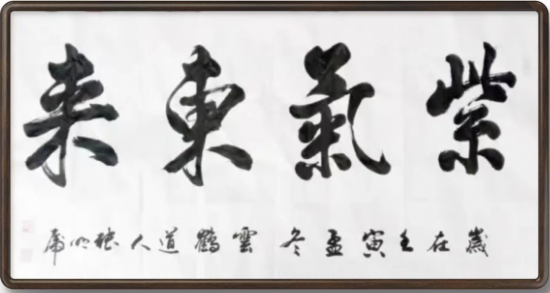 紫氣東来
歲在壬寅孟冬雲鶴道人張明虎